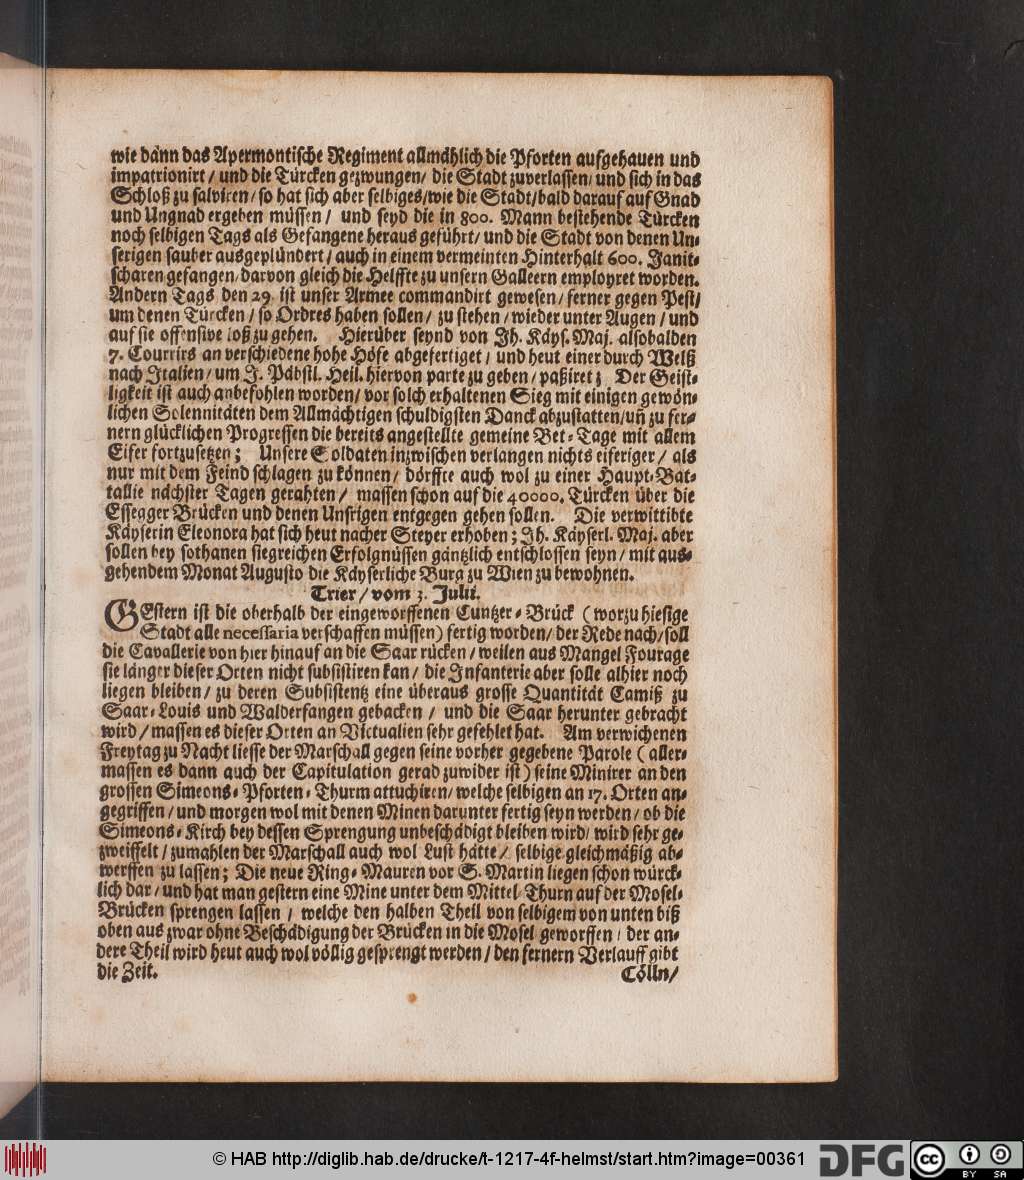 wie dann das Apermontische Regiment allmåhlich die Pforten aufgehauen und
impatrionirt / und die Türcken gezwungen / die Stadt zuverlassen / und sich in das
Schloß zu salviren / so hat sich aber selbiges / wie die Stadt / bald darauf auf Gnad
und Ungnad ergeben müssen / und seyd die in 800. Mann bestehende Türcken
noch selbigen Tags als Gefangene heraus geführt / und die Stadt von denen Un-
serigen sauber ausgeplündert / auch in einem vermeinten Hinterhalt 600. Janit-
scharen gefangen / darvon gleich die Helffte zu unsern Galleern employret worden.
Andern Tags den 29. ist unser Armee commandirt gewesen / ferner gegen Pest /
um denen Türcken / so Ordres haben sollen / zu stehen / wieder unter Augen / und
auf sie offensive loß zu gehen. Hierüber seynd von Ih. Kåys. Maj. alsobalden
7. Courrirs an verschiedene hohe Höfe abgefertiget / und heut einer durch Welß
nach Italien / um J. Påbstl. Heil. hiervon parte zu geben / paßiret; Der Geist-
ligkeit ist auch anbefohlen worden / vor solch erhaltenen Sieg mit einigen gewön-
lichen Solennitåten dem Allmåchtigen schuldigsten Danck abzustatten / uñ zu fer-
nern glücklichen Progressen die bereits angestellte gemeine Bet-Tage mit allem
Eifer fortzusetzen; Unsere Soldaten inzwischen verlangen nichts eiferiger / als
nur mit dem Feind schlagen zu können / dörffte auch wol zu einer Haupt-Bat-
tallie nåchster Tagen gerahten / massen schon auf die 40000. Türcken über die
Essegger Brücken und denen Unsrigen entgegen gehen sollen. Die verwittibte
Kåyserin Eleonora hat sich heut nacher Steyer erhoben; Ih. Kåyserl. Maj. aber
sollen bey sothanen siegreichen Erfolgnüssen gåntzlich entschlossen seyn / mit aus-
gehendem Monat Augusto die Kåyserliche Burg zu Wien zu bewohnen.
Trier / vom 3. Julii.
GEstern ist die oberhalb der eingeworffenen Cuntzer-Brück ( worzu hiesige
Stadt alle necessaria verschaffen müssen) fertig worden / der Rede nach / soll
die Cavallerie von hier hinauf an die Saar rücken / weilen aus Mangel Fourage
sie långer dieser Orten nicht subsistiren kan / die Infanterie aber solle alhier noch
liegen bleiben / zu deren Subsistentz eine überaus grosse Quantitåt Camiß zu
Saar-Louis und Walderfangen gebacken / und die Saar herunter gebracht
wird / massen es dieser Orten an Victualien sehr gefehlet hat. Am verwichenen
Freytag zu Nacht liesse der Marschall gegen seine vorher gegebene Parole ( aller-
massen es dann auch der Capitulation gerad zuwider ist ) seine Minirer an den
grossen Simeons-Pforten-Thurm attuchiren / welche selbigen an 17. Orten an-
gegriffen / und morgen wol mit denen Minen darunter fertig seyn werden / ob die
Simeons-Kirch bey dessen Sprengung unbeschådigt bleiben wird / wird sehr ge-
zweiffelt / zumahlen der Marschall auch wol Lust håtte / selbige gleichmåßig ab-
werffen zu lassen; Die neue Ring-Mauren vor S. Martin liegen schon würck-
lich dar / und hat man gestern eine Mine unter dem Mittel-Thurn auf der Mosel-
Brücken sprengen lassen / welche den halben Theil von selbigem von unten biß
oben aus zwar ohne Beschådigung der Brücken in die Mosel geworffen / der an-
dere Theil wird heut auch wol völlig gesprengt werden / den fernern Verlauff gibt
die Zeit. Cölln /
© HAB http://diglib.hab.de/drucke/t-1217-4f-helmst/start.htm?image=00361 DFG cc BY SA